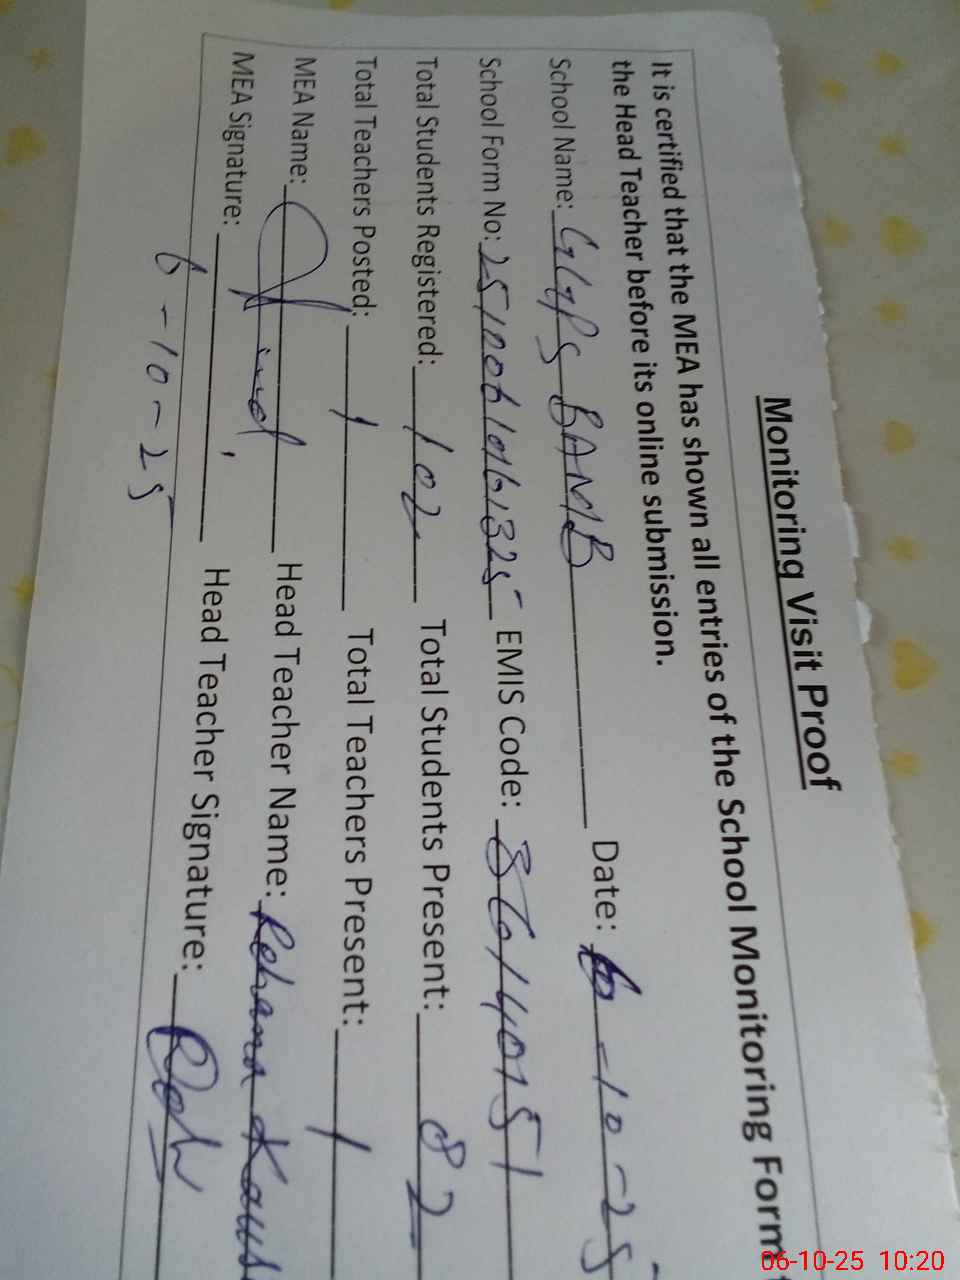 Monitoring Visit Proof
It is certified that the MEA has shown all entries of the School Monitoring Form
the Head Teacher before its online submission.
School Name: GGPS BAMB Date: 6-10-25
School Form No: EMIS Code:
Total Students Registered: 102 Total Students Present: 82
Total Teachers Posted: 1 Total Teachers Present: 1
MEA Name: Head Teacher Name: Rehana Kaus
MEA Signature: Head Teacher Signature:
6-10-25
06-10-25 10:20